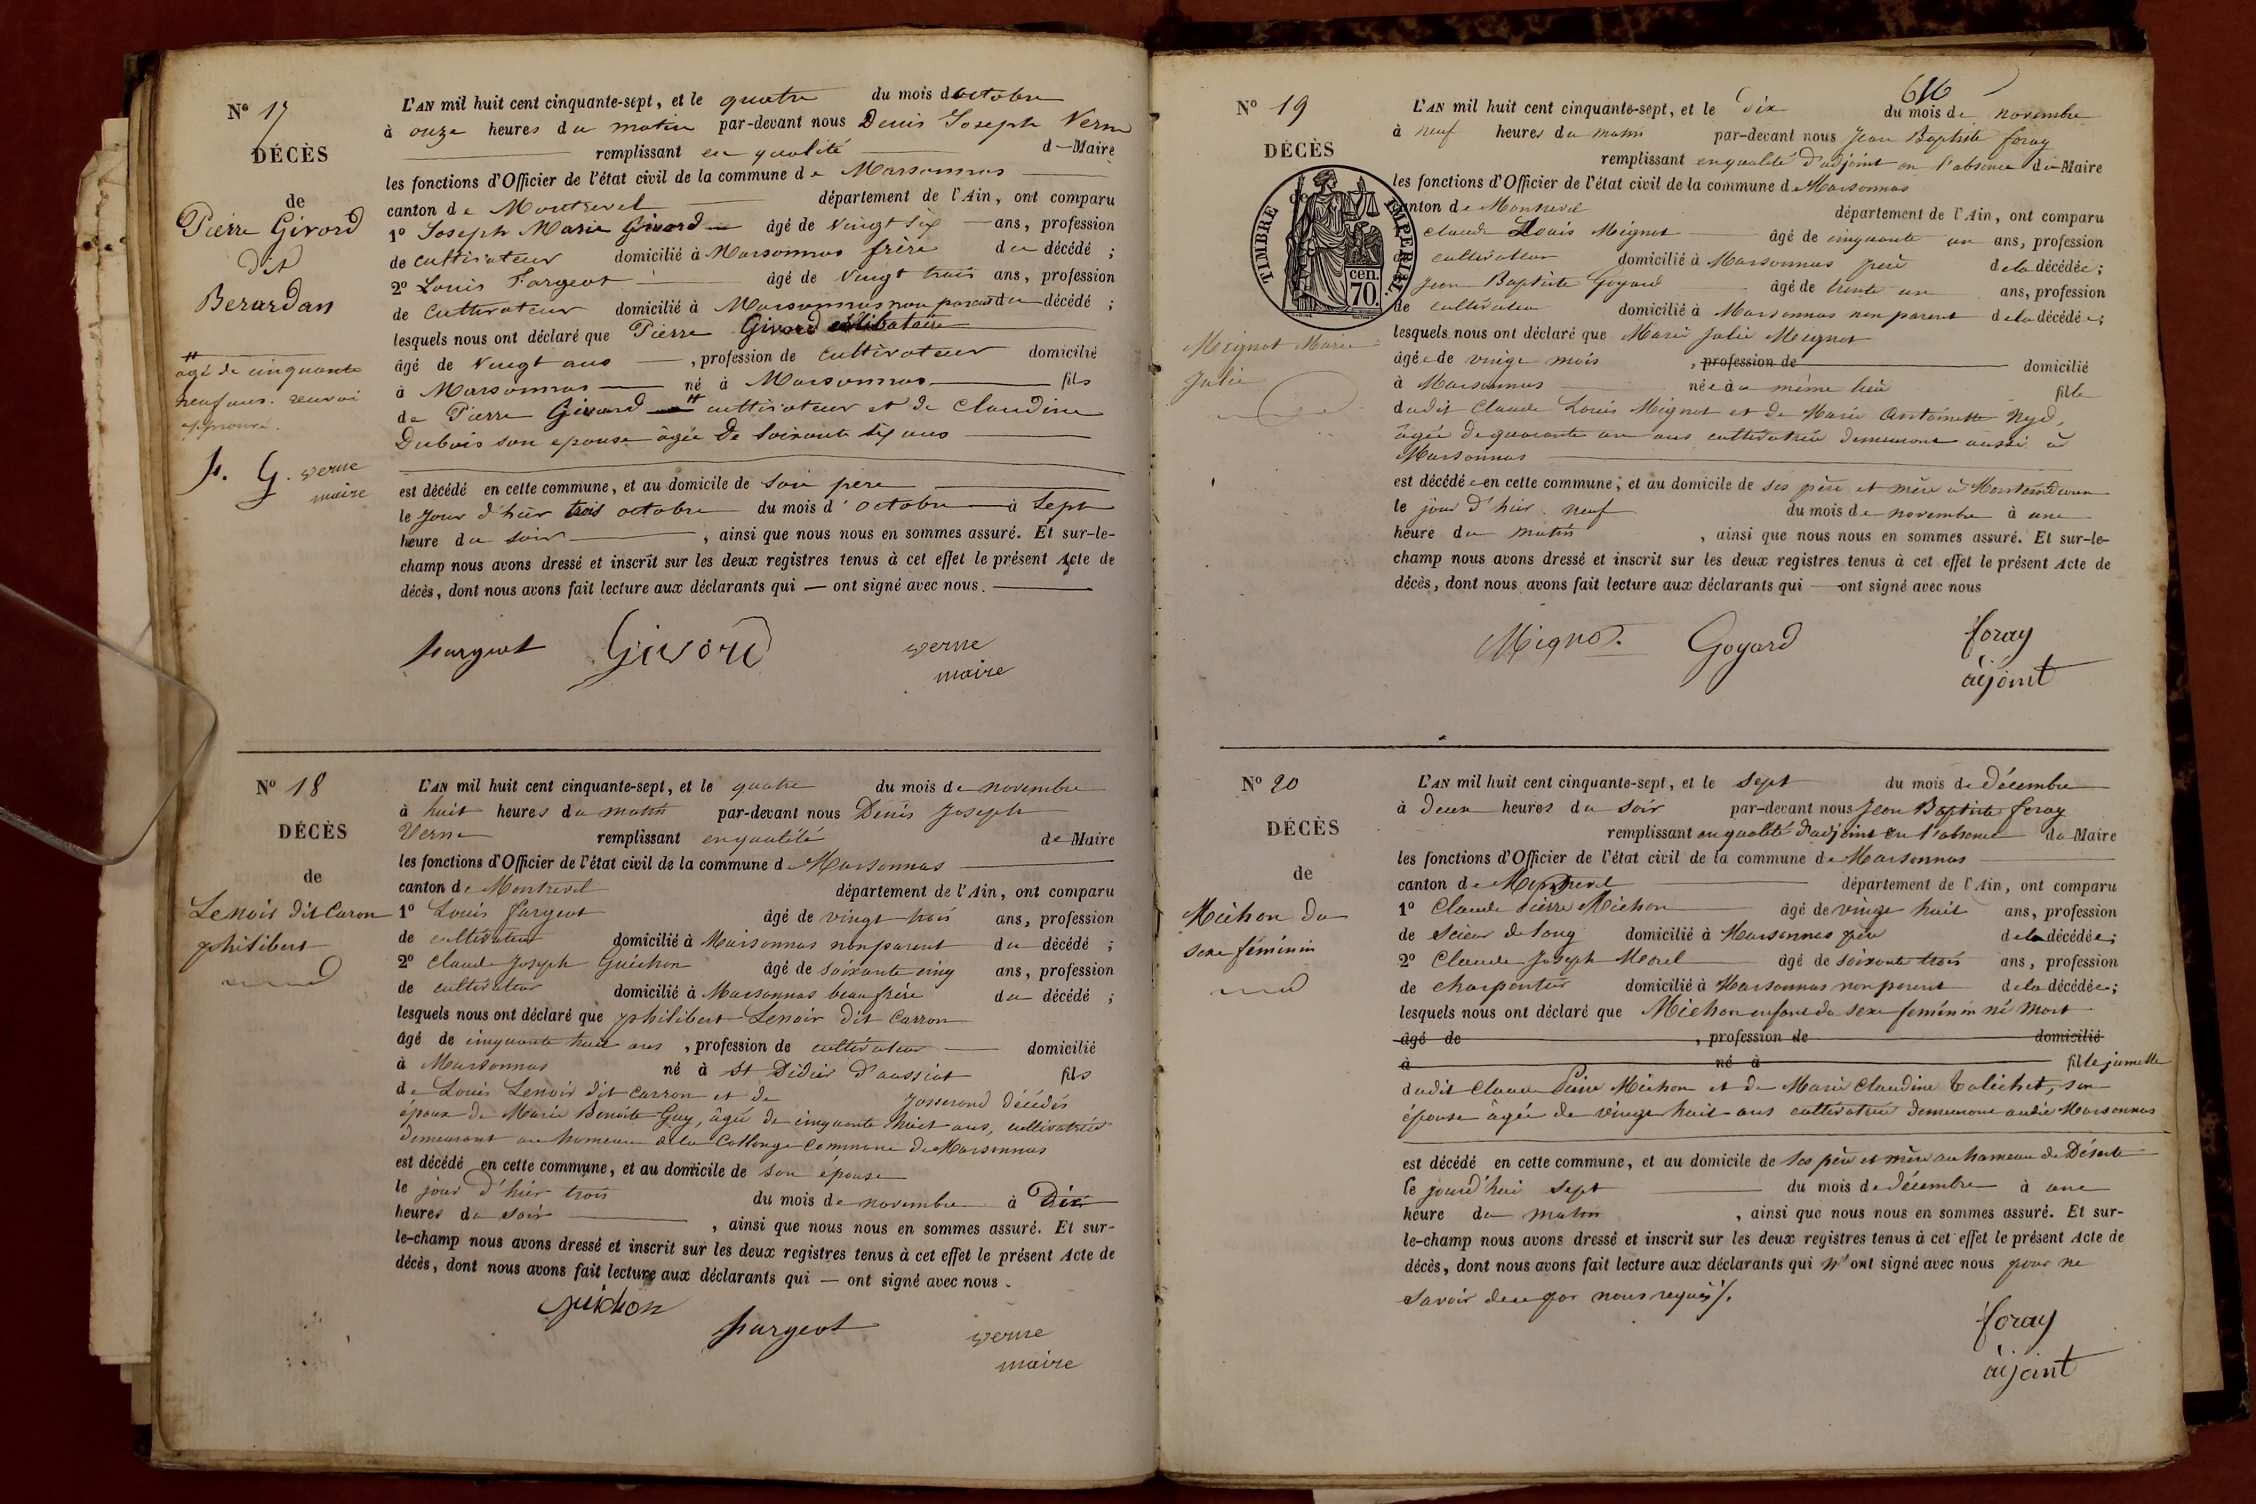 Nº 17
DÉCÈS
de
Pierre Girord
dit
Berardan
H
agé de cinquante
neuf ans. renvoi
approuvé.
p. G. verne
maire
L'AN mil huit cent cinquante-sept, et le quatre du mois d'octobre
à onze heures du matin par-devant nous Denis Joseph Verne
remplissant en qualité de Maire
les fonctions d'Officier de l'état civil de la commune de Marsonnas
canton de Montrevel département de l'Ain, ont comparu
1º Joseph Marie Girord âgé de vingt six ans, profession
de cultivateur domicilié à Marsonnas frère du décédé ;
2º Louis Fargeot âgé de vingt trois ans, profession
de cultivateur domicilié à Marsonnas non parent du décédé ;
lesquels nous ont déclaré que Pierre Girord célibataire
âgé de vingt ans , profession de cultivateur domicilié
à Marsonnas né à Marsonnas fils
de Pierre Girord H cultivateur et de Claudine
Dubois son epouse âgée de soixante six ans
est décédé en cette commune, et au domicile de son père
le jour d'hier trois octobre du mois d'octobre à sept
heure du soir , ainsi que nous nous en sommes assuré. Et sur-le-
champ nous avons dressé et inscrit sur les deux registres tenus à cet effet le présent Acte de
décès, dont nous avons fait lecture aux déclarants qui — ont signé avec nous.
fargeot Girord verne
maire
Nº 18
DÉCÈS
de
Lenoir dit Caron
philibert
L'AN mil huit cent cinquante-sept, et le quatre du mois de novembre
à huit heures du matin par-devant nous Denis Joseph
Verne remplissant en qualité de Maire
les fonctions d'Officier de l'état civil de la commune de Marsonnas
canton de Montrevel département de l'Ain, ont comparu
1º Louis Fargeot âgé de vingt trois ans, profession
de cultivateur domicilié à Marsonnas non parent du décédé ;
2º Claude Joseph Guichon âgé de soixante cinq ans, profession
de cultivateur domicilié à Marsonnas beau frère du décédé ;
lesquels nous ont déclaré que philibert Lenoir dit Carron
âgé de cinquante huit ans , profession de cultivateur domicilié
à Marsonnas né à St Didier d'aussiat fils
de Louis Lenoir dit Carron et de Josserand décédés
époux de Marie Benoite Guy, âgée de cinquante huit ans, cultivatrice
demeurant au hameau de la Collonge commune de Marsonnas
est décédé en cette commune, et au domicile de son épouse
le jour d'hier trois du mois de novembre à Dix
heures du soir , ainsi que nous nous en sommes assuré. Et sur-
le-champ nous avons dressé et inscrit sur les deux registres tenus à cet effet le présent Acte de
décès, dont nous avons fait lecture aux déclarants qui — ont signé avec nous.
guichon
fargeot verne
maire
Nº 19
DÉCÈS
de
TIMBRE IMPERIAL
70. cen.
Mignot Marie
Julie
L'AN mil huit cent cinquante-sept, et le dix du mois de novembre
à neuf heures du matin par-devant nous Jean Baptiste foray
remplissant en qualité d'adjoint en l'absence du Maire
les fonctions d'Officier de l'état civil de la commune de Marsonnas
canton de Montrevel département de l'Ain, ont comparu
Claude Louis Mignot âgé de cinquante un ans, profession
cultivateur domicilié à Marsonnas père de la décédée ;
Jean Baptiste Goyard âgé de trente un ans, profession
de cultivateur domicilié à Marsonnas non parent de la décédée ;
lesquels nous ont déclaré que Marie Julie Mignot
âgée de vingt mois , profession de domicilié
à Marsonnas née à même lieu fille
dudit Claude Louis Mignot et de Marie Antoinette
âgée de quarante un ans cultivatrice demeurant aussi à
Marsonnas
est décédée en cette commune, et au domicile de ses père et mère à
le jour d'hier neuf du mois de novembre à une
heure du matin , ainsi que nous nous en sommes assuré. Et sur-le-
champ nous avons dressé et inscrit sur les deux registres tenus à cet effet le présent Acte de
décès, dont nous avons fait lecture aux déclarants qui — ont signé avec nous
Mignot. Goyard foray
ajoint
Nº 20
DÉCÈS
de
Michon du
sexe féminin
L'AN mil huit cent cinquante-sept, et le sept du mois de décembre
à deux heures du soir par-devant nous Jean Baptiste foray
remplissant en qualité d'adjoint en l'absence du Maire
les fonctions d'Officier de l'état civil de la commune de Marsonnas
canton de Montrevel département de l'Ain, ont comparu
1º Claude Pierre Michon âgé de vingt huit ans, profession
de scieur de long domicilié à Marsonnas père de la décédée ;
2º Claude Joseph Morel âgé de soixante trois ans, profession
de charpentier domicilié à Marsonnas non parent de la décédée ;
lesquels nous ont déclaré que Michon enfant du sexe féminin né mort
âgé de , profession de domicilié
à né à fille jumelle
dudit Claude Pierre Michon et de Marie ClaudineТалichet, son
épouse âgée de vingt huit ans cultivatrice demeurant audit Marsonnas
est décédé en cette commune, et au domicile de ses père et mère au hameau de
le jourd'hui sept du mois de décembre à une
heure du matin , ainsi que nous nous en sommes assuré. Et sur-
le-champ nous avons dressé et inscrit sur les deux registres tenus à cet effet le présent Acte de
décès, dont nous avons fait lecture aux déclarants qui n'ont signé avec nous pour ne
savoir de ce par nous requis /.
foray
ajoint